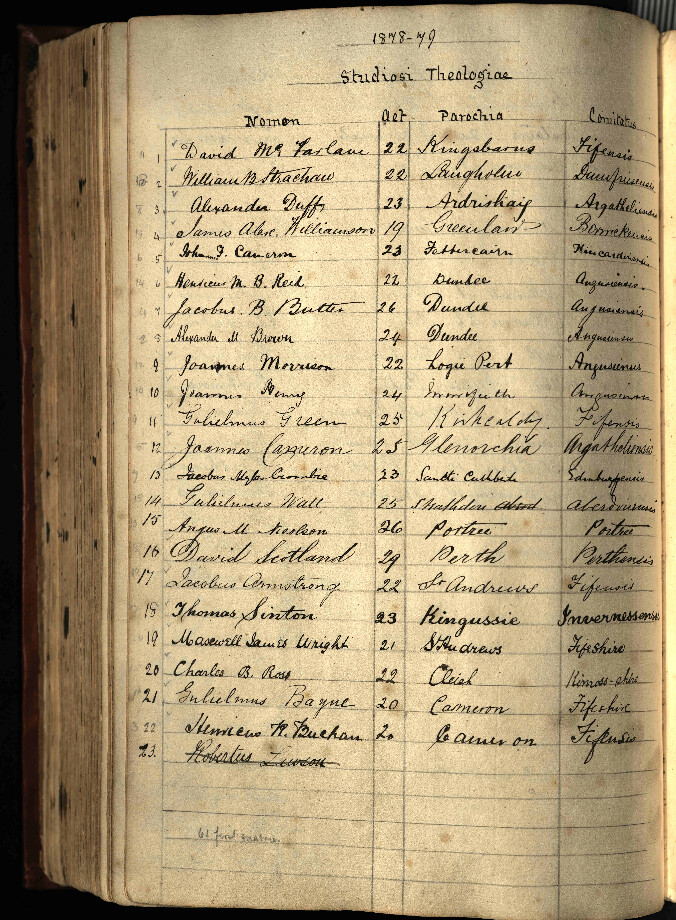 1878-79
Studiosi Theologiae
Nomen Aet Parochia Comitatus
1 David Mc Farlane 22 Kingsbarns Fifensis
2 William B Strachan 22 Langholm Dumfriesensis
3 Alexander Duff 23 Ardrishaig Argatheliensis
4 James Alex. Williamson 19 Greenlaw
5 John F. Cameron 23 Fettercairn Kincardinensis
6 Henricus M. B. Reid 22 Dundee Angusiensis.
7 Jacobus. B. Butter 26 Dundee Angusiensis
8 Alexander M Brown 24 Dundee Angusiensis
9 Joannes Morrison 22 Logie Pert Angusiensis
10 Joannes Henry 24 Angusiensis
11 Gulielmus Green 25 Kirkcaldy. Fifensis
12 Joannes Cameron 25 Glenorchia Argatheliensis
13 Jacobus Crombie 23 Sancti Cuthberti Edinburgensis
14 Gulielmus Watt 25 Strathdon Aberd Aberdoniensis
15 Angus M. Nicolson 26 Portree Portree
16 David Scotland 29 Perth Perthensis
17 Jacobus Armstrong 22 St Andrews Fifensis
18 Thomas Sinton 23 Kingussie Invernessensis
19 Maxwell James Wright 21 St Andrews Fifeshire
20 Charles B. Ross 22 Cleish Kinross-shire
21 Gulielmus Bayne 20 Cameron Fifeshire
22 Henricus R. Buchan 20 Cameron Fifensis
23. Robertus
61 first matric.